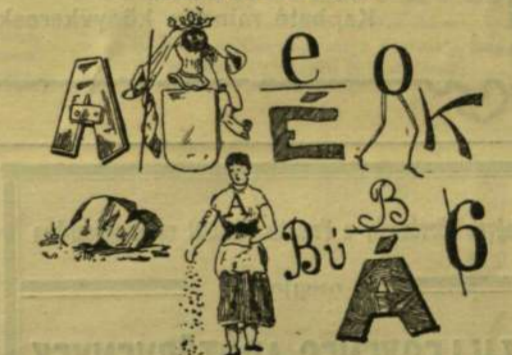 A e
É o K
A Bú B
Á 6